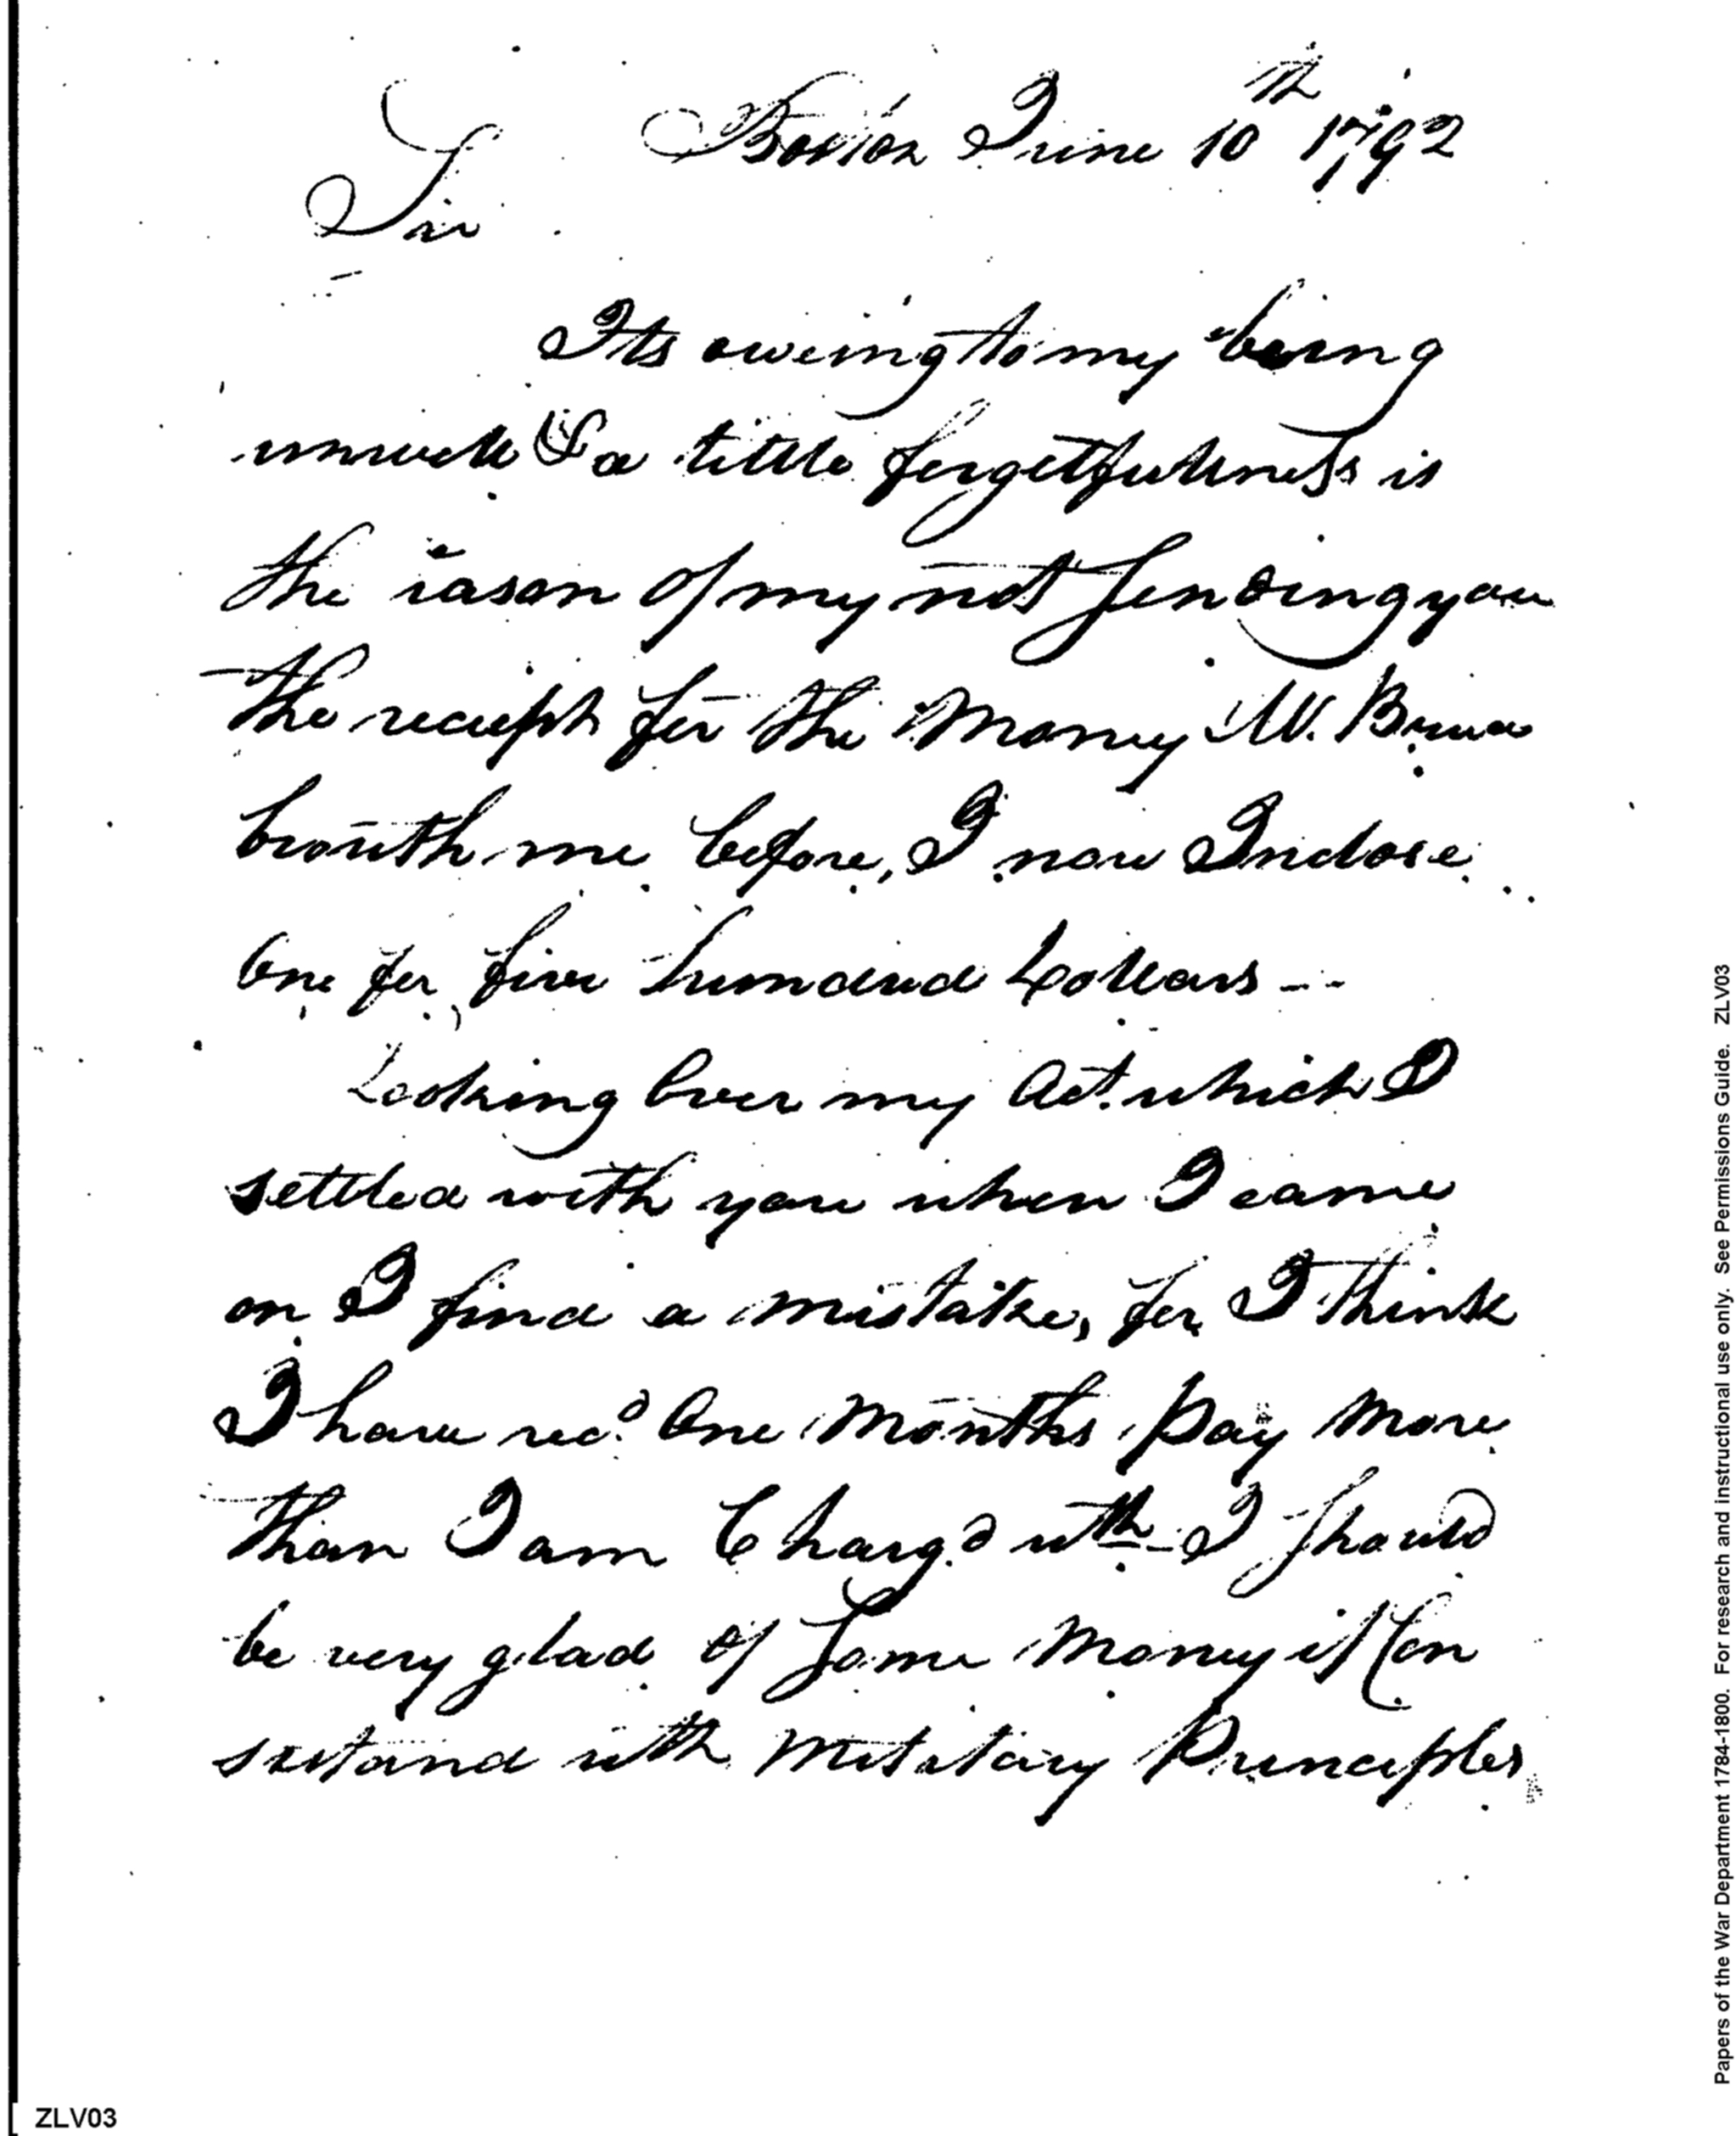 Boston June 10th 1792
Sir
Its oweing to my being
unwell & a little forgetfullness is
the reason of my not sending you
the reciept for the Money Mr.
brouth me before, I now Inclose
One for five hundred Dollars --
Looking Over my Act. which I
settled with you when I came
on I find a mistake, for I think
I have recd. One Months Pay More
than I am Chargd. wth - I should
be very glad of Some Money if Con
sistand with Military Principles
Papers of the War Department 1784-1800. For research and instructional use only. See Permissions Guide. ZLV03
ZLV03